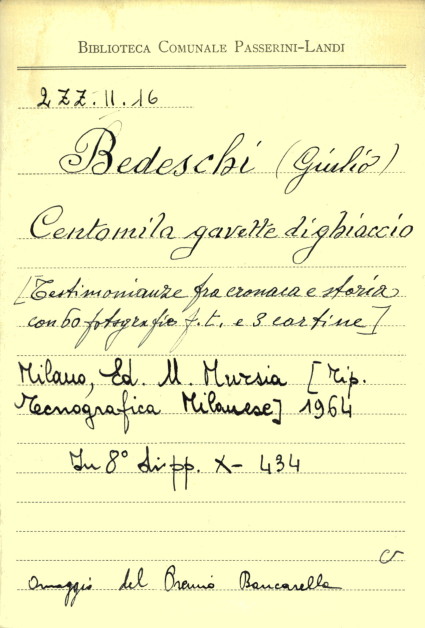 BIBLIOTECA COMUNALE PASSERINI-LANDI
2ZZ.II.16
Bedeschi (Giulio)
Centomila gavette di ghiaccio
[Testimonianze fra cronaca e storia
con 60 fotografie f.t. e 3 cartine]
Milano, Ed. U. Mursia [Tip.
Tecnografica Milanese] 1964
In 8° di pp. X- 434
Omaggio del Premio Bancarella